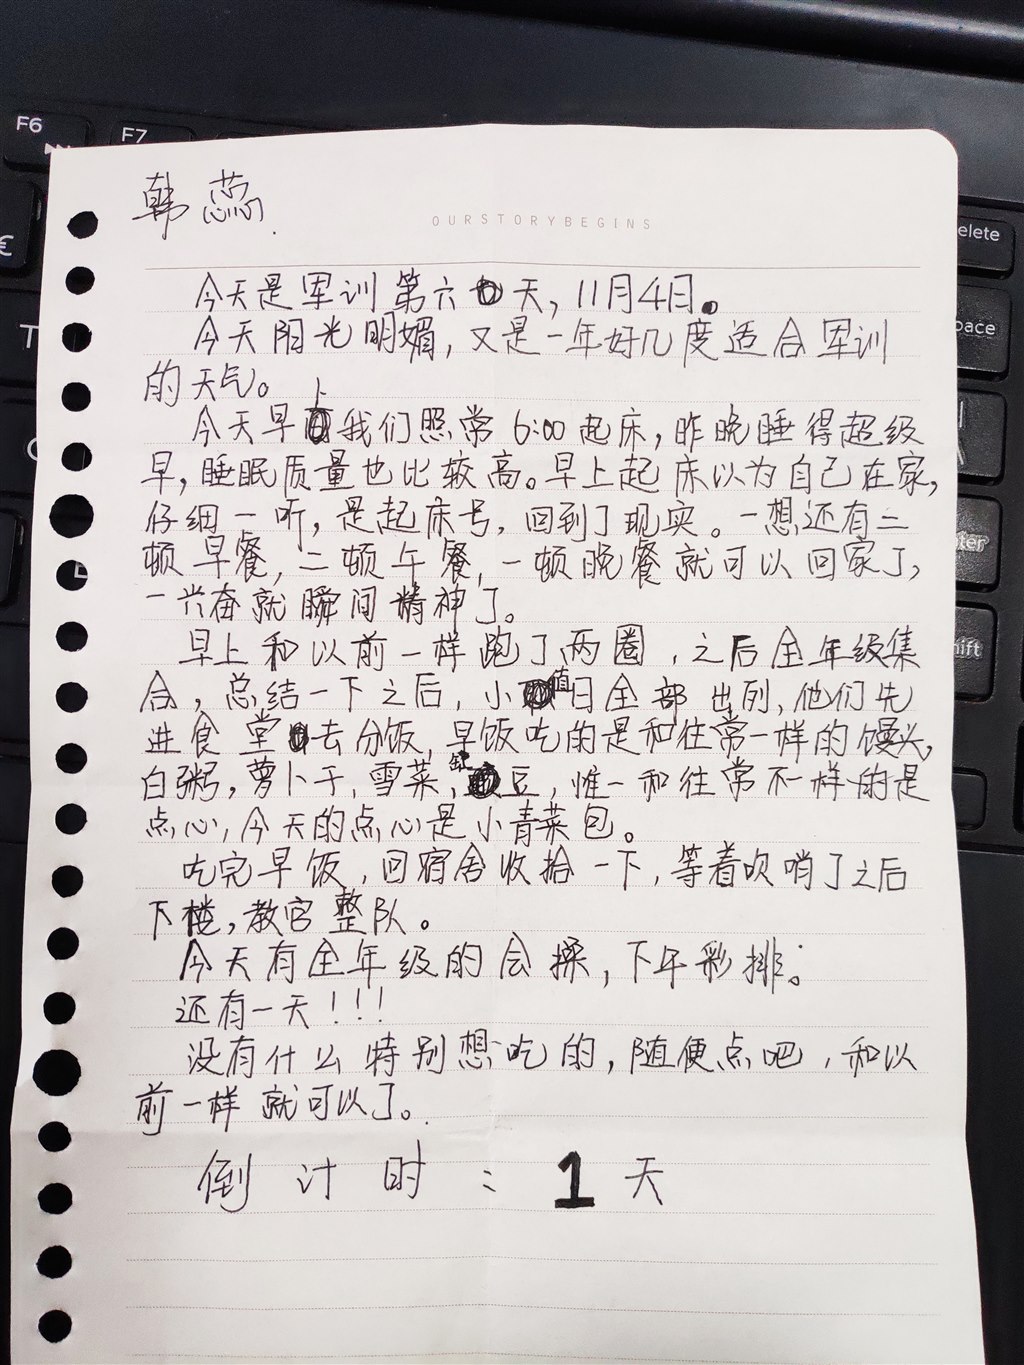 F6
F7
elete
韩蕊.
OURSTORYBEGINS
今天是军训第六天，11月4日。
pace
今天阳光明媚，又是一年好几度适合军训
的天气。
今天早上我们照常6:00起床，昨晚睡得超级
早，睡眠质量也比较高。早上起床以为自己在家，
仔细一听，是起床号，回到了现实。一想还有二
顿早餐，二顿午餐，一顿晚餐就可以回家了，
一兴奋就瞬间精神了。
hift
早上和以前一样跑了两圈，之后全年级集
合，总结一下之后，小值日全部出列，他们先
进食堂去分饭，早饭吃的是和往常一样的馒头，
白粥，萝卜干，雪菜，豇豆，惟一和往常不一样的是
点心，今天的点心是小青菜包。
吃完早饭，回宿舍收拾一下，等着吹哨了之后
下楼，教官整队。
今天有全年级的会操，下午彩排。
还有一天！！！
没有什么特别想吃的，随便点吧，和以
前一样就可以了。
倒计时：1天